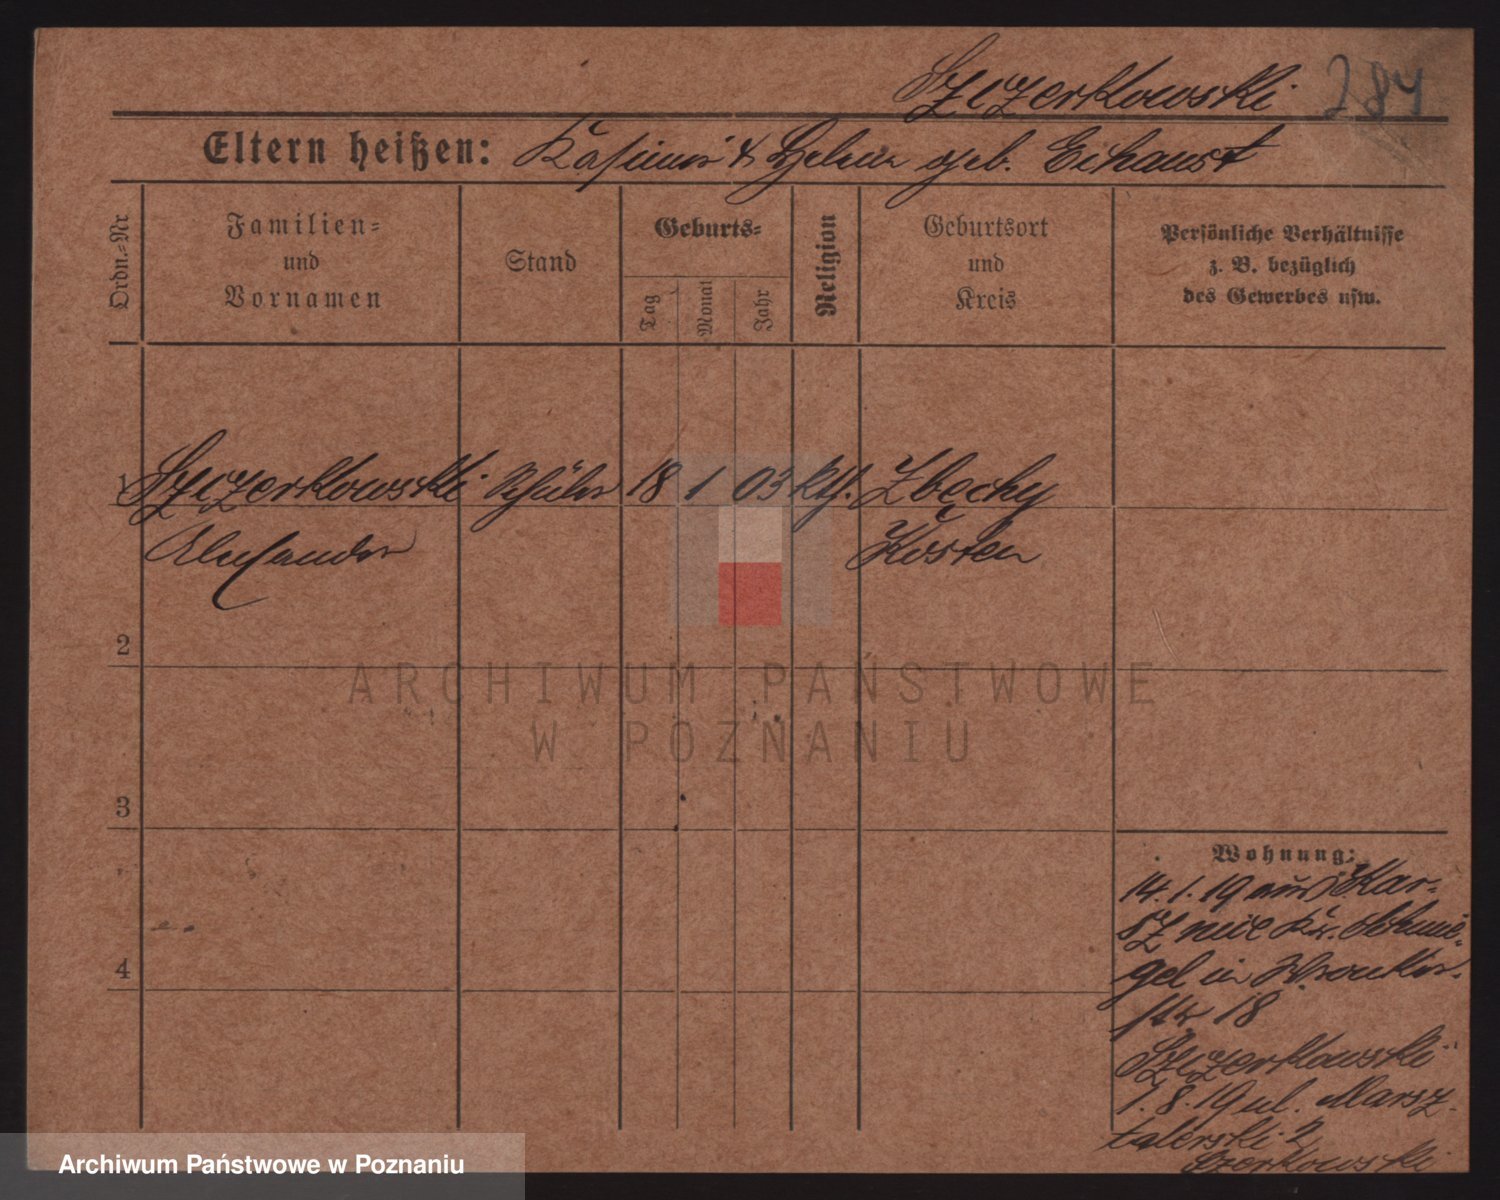 Szczerkowski 284
Eltern heißen: Kasimir & Helene geb. Eckaust
Ordn.=Nr
Familien=
und
Vornamen
Stand
Geburts=
Tag
Monat
Jahr
Religion
Geburtsort
und
Kreis
Persönliche Verhältnisse
z. B. bezüglich
des Gewerbes usw.
1 Szczerkowski Schüler 18 1 03 kth. Zbęchy
Alexander Kosten
2
ARCHIWUM PAŃSTWOWE
W POZNANIU
3
4
Wohnung:
14. 1. 19 aus Kar=
Kr. Schmie=
gel in Wronker=
str 18
Szczerkowski
1. 8. 19 ul. Marsz=
talerski 2
Szczerkowski
Archiwum Państwowe w Poznaniu